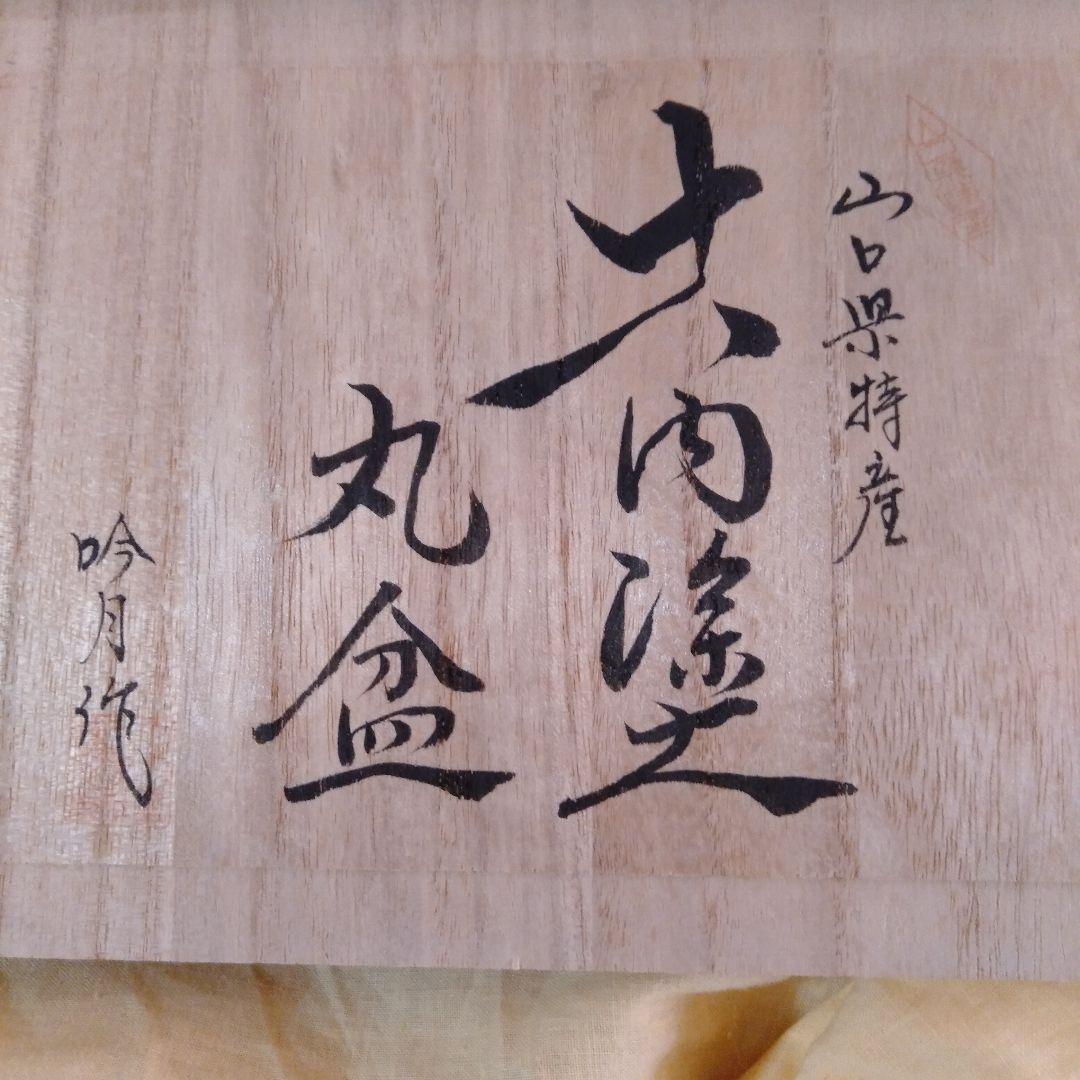 山口県特産
大内塗
丸盆
吟月作